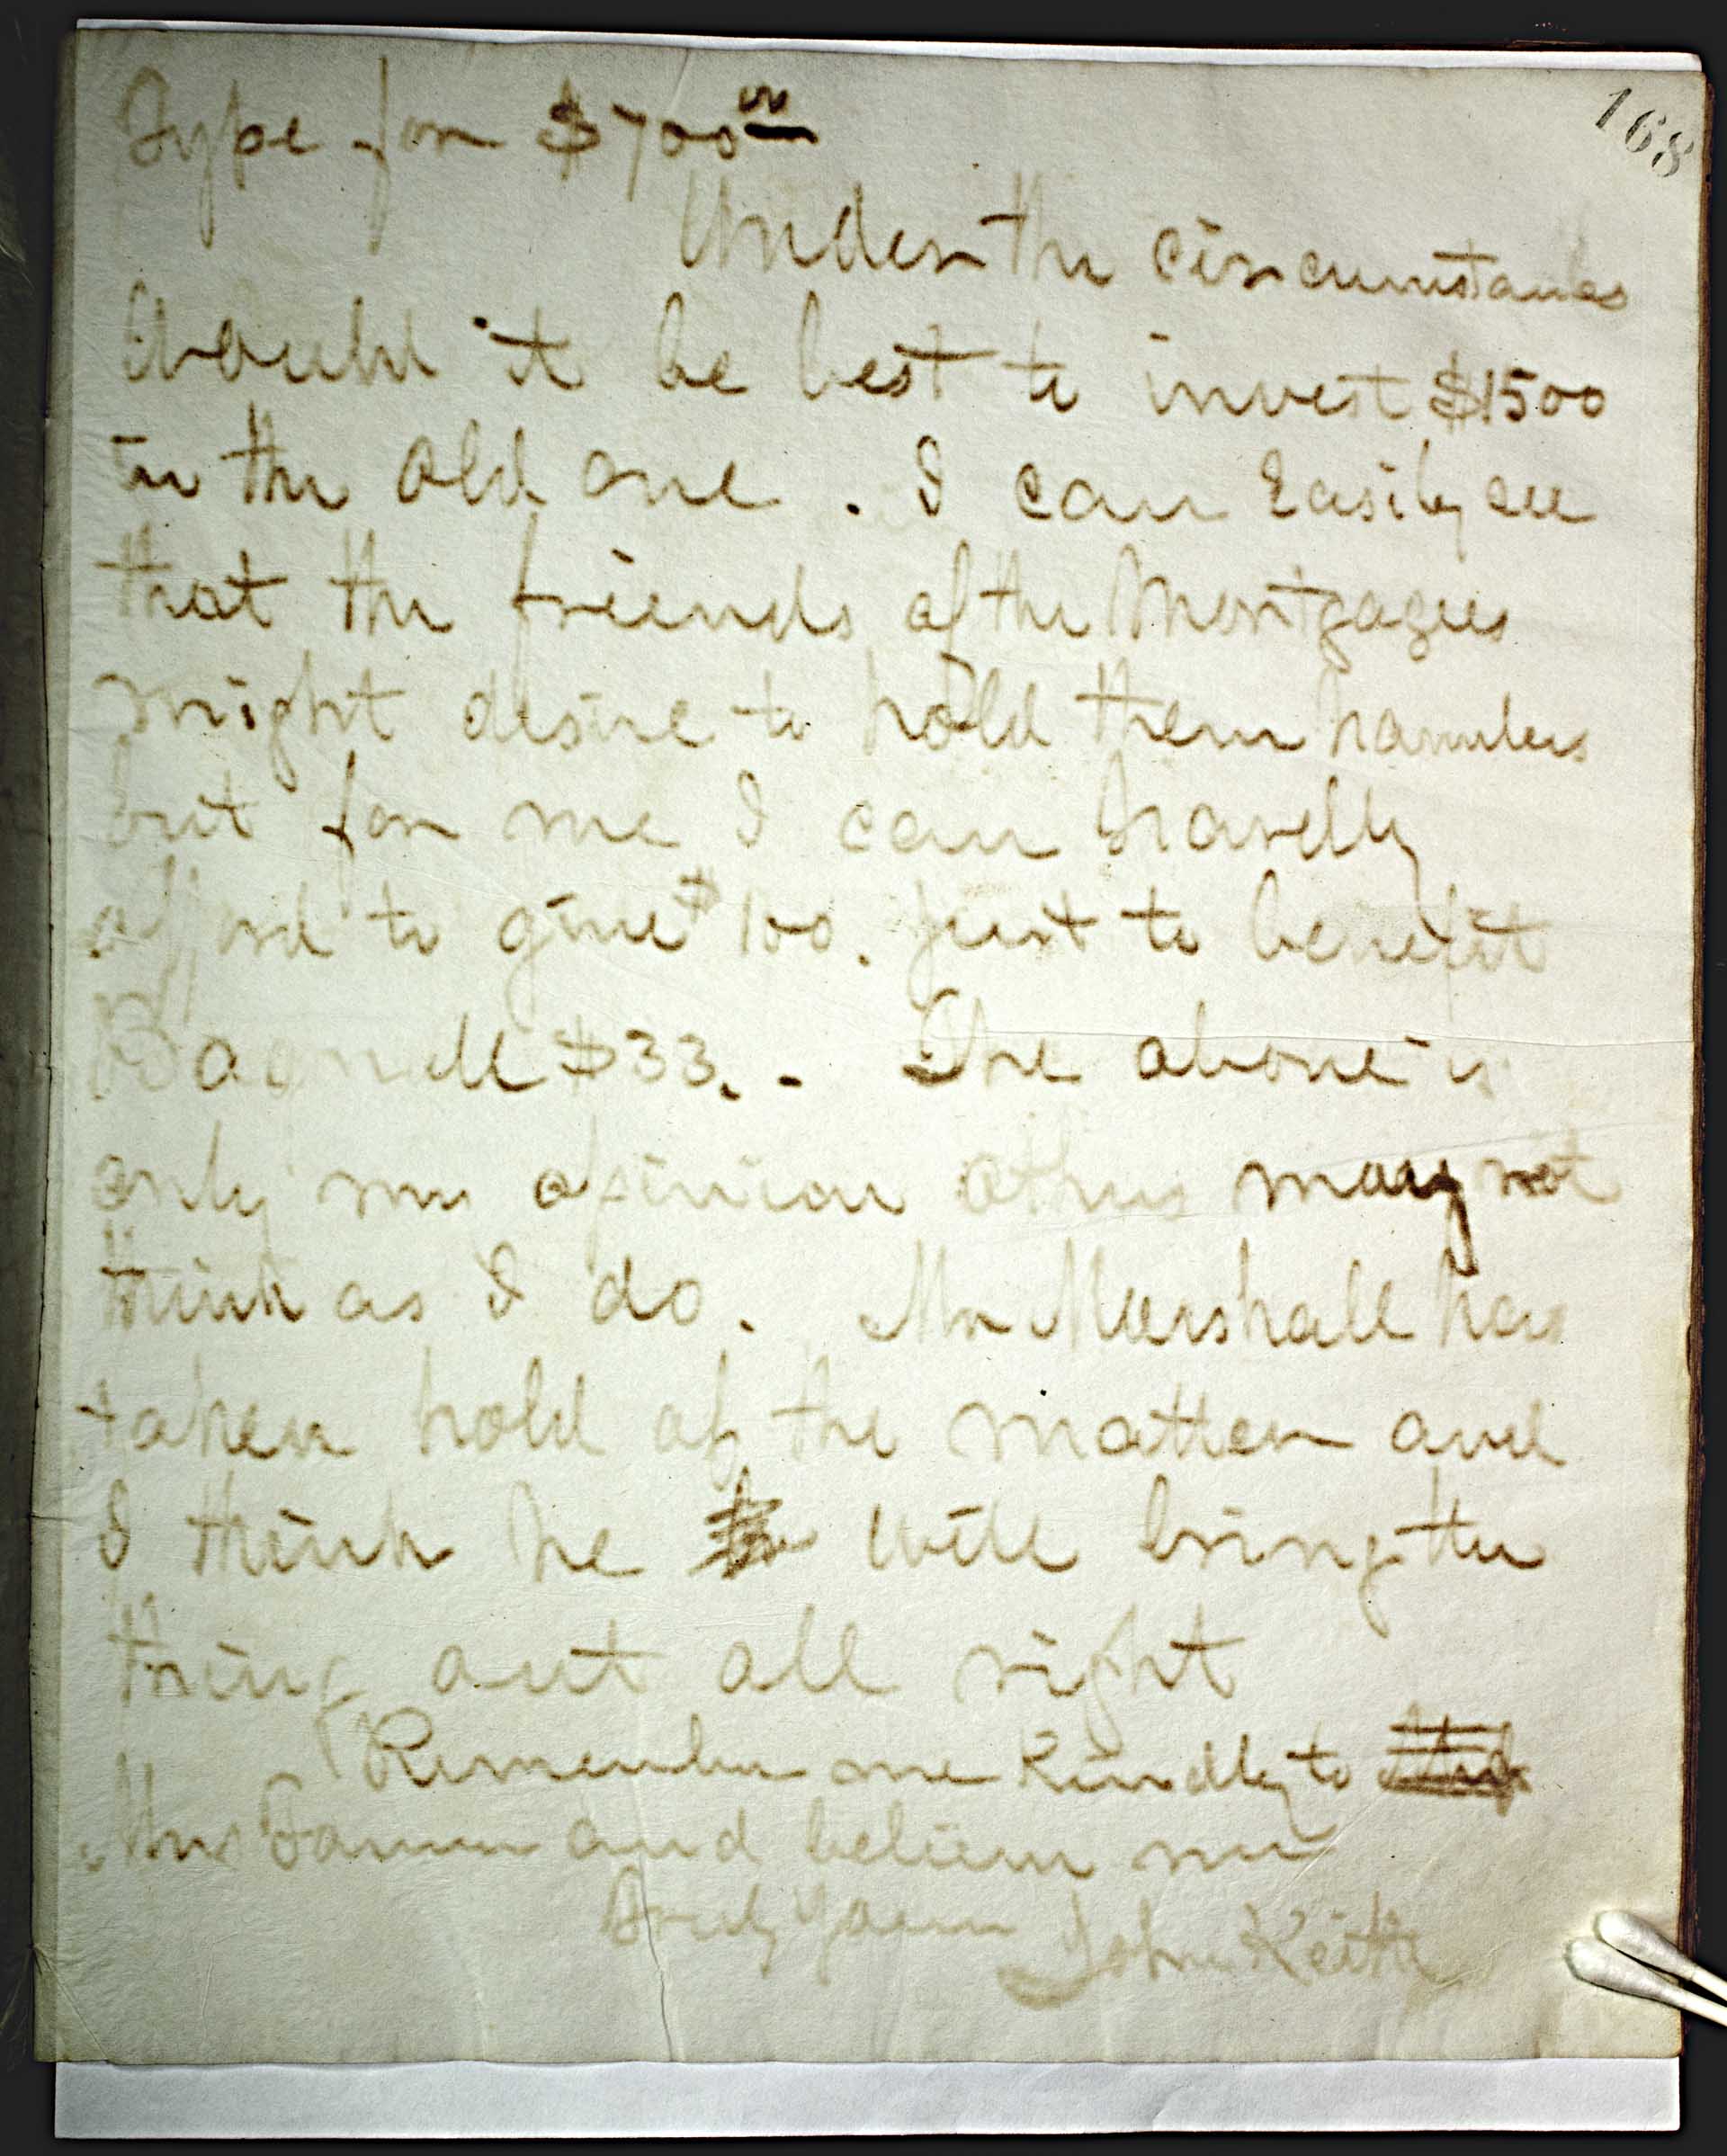 168
Type for $700 00
Under the circumstances
Would it be best to invest $1500
in the old one. I can Easily see
that the friends of the Mortgagees
might desire to hold them harmless
but for me I can hardly
afford to give $100. just to benefit
Bagnall $33. - The above is
only my opinion others may not
think as I do. Mr Marshall has
taken hold of the matter and
I think he will bring the
thing out all right
Remember me Kindly to
Mrs and believe me
Truly Yours John Keith